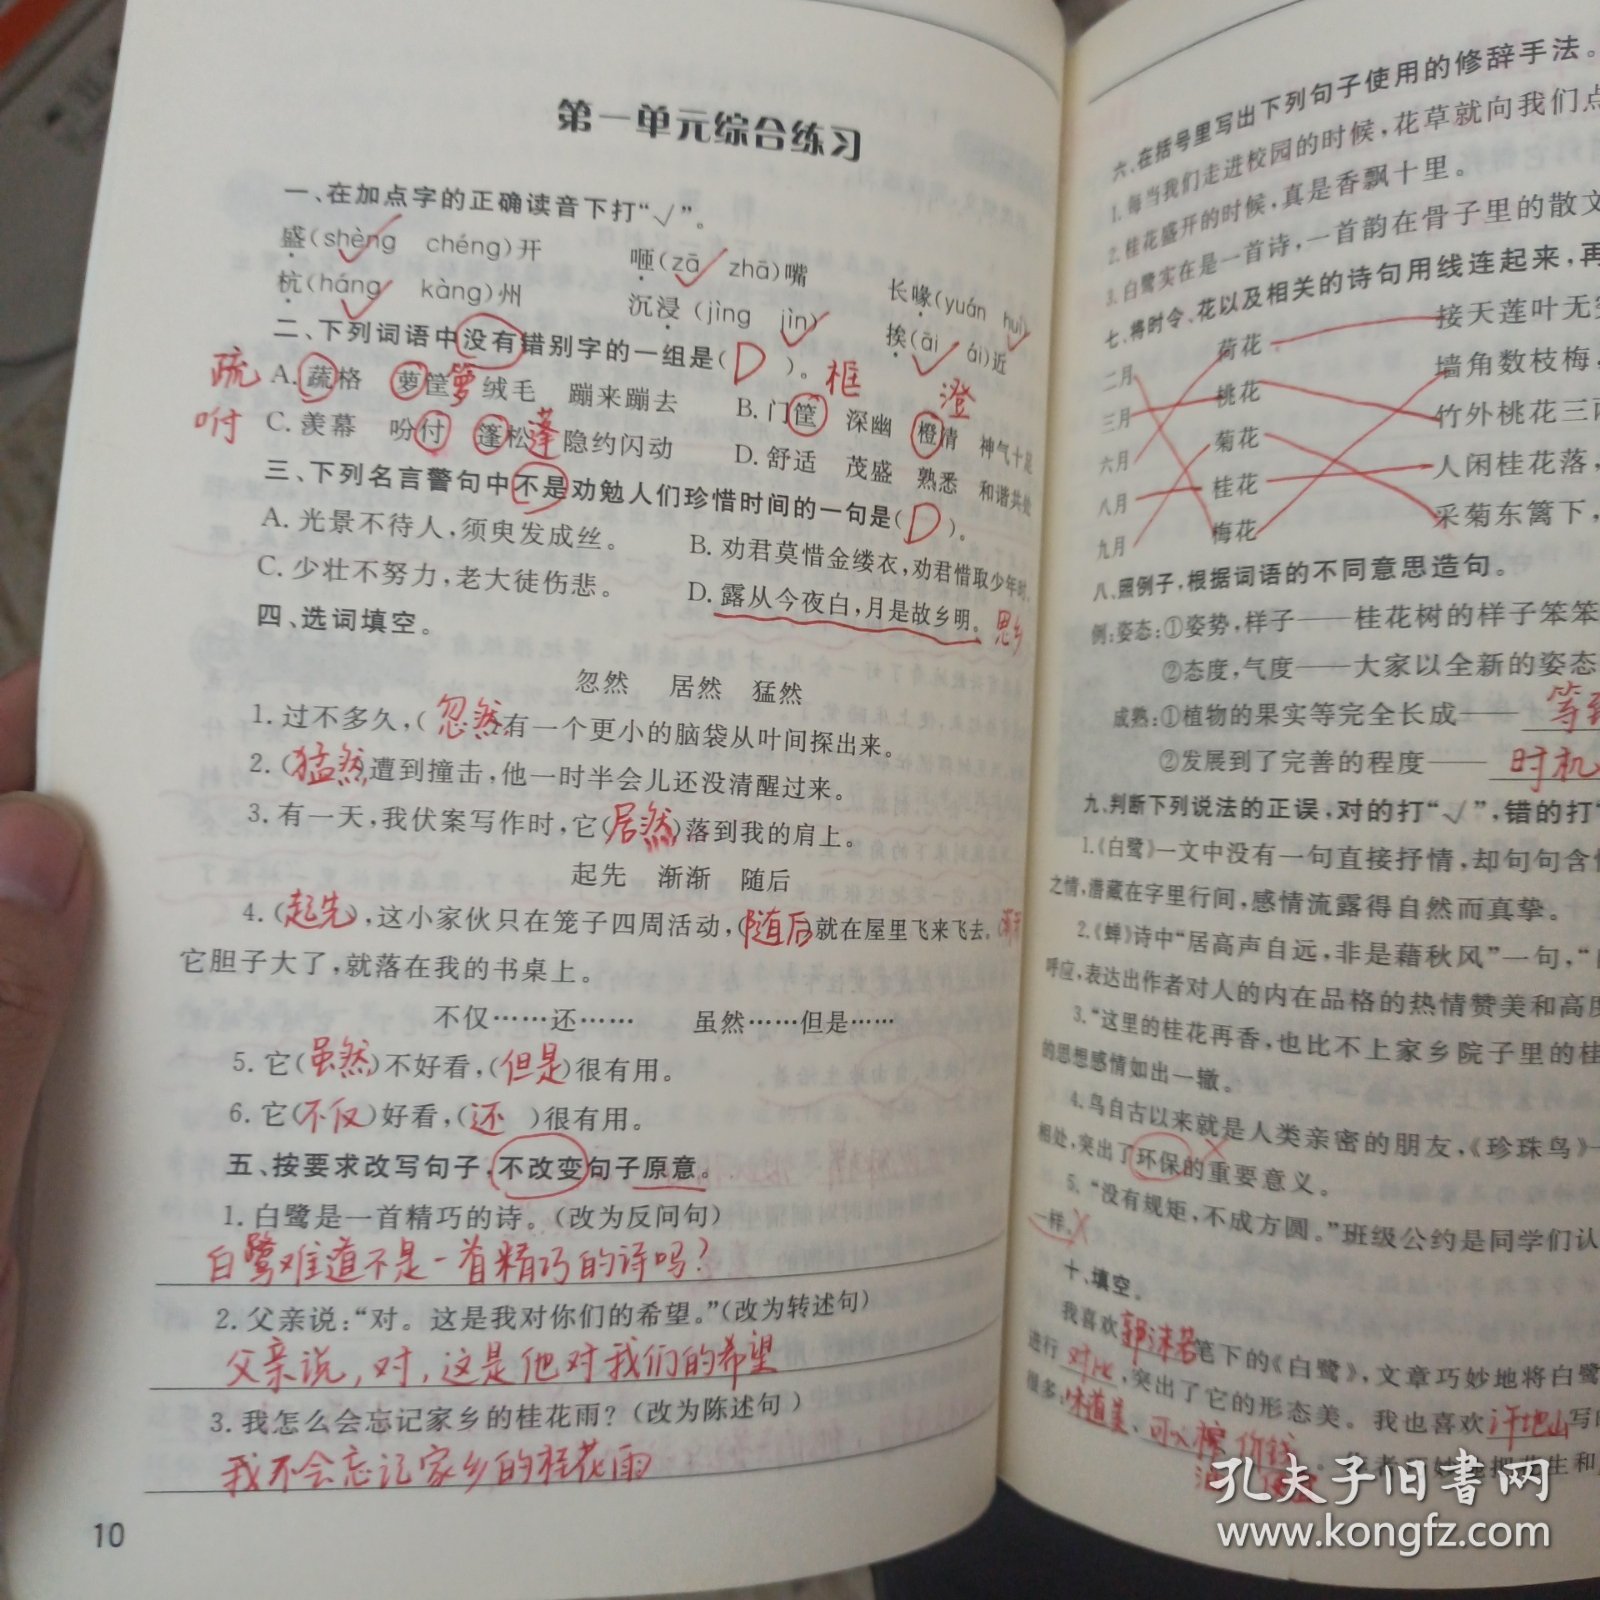 第一单元综合练习
一、在加点字的正确读音下打“√”。
盛(shèng chéng)开 咂(zā zhā)嘴 长喙(yuán huì)
杭(háng kàng)州 沉浸(jìng jìn) 挨(āi ái)近
二、下列词语中没有错别字的一组是( D )。
疏 A. 蔬格 萝筐 箩 绒毛 蹦来蹦去 B. 门筐 框 深幽 橙清 澄 神气十足
咐 C. 羡幕 吩付 篷松 蓬 隐约闪动 D. 舒适 茂盛 熟悉 和谐共处
三、下列名言警句中不是劝勉人们珍惜时间的一句是( D )。
A. 光景不待人,须臾发成丝。 B. 劝君莫惜金缕衣,劝君惜取少年时。
C. 少壮不努力,老大徒伤悲。 D. 露从今夜白,月是故乡明。 思乡
四、选词填空。
忽然 居然 猛然
1. 过不多久,( 忽然 )有一个更小的脑袋从叶间探出来。
2. (猛然)遭到撞击,他一时半会儿还没清醒过来。
3. 有一天,我伏案写作时,它(居然)落到我的肩上。
起先 渐渐 随后
4. (起先),这小家伙只在笼子四周活动,(随后)就在屋里飞来飞去,(
它胆子大了,就落在我的书桌上。
不仅……还…… 虽然……但是……
5. 它(虽然)不好看,(但是)很有用。
6. 它(不仅)好看,(还 )很有用。
五、按要求改写句子,不改变句子原意。
1. 白鹭是一首精巧的诗。(改为反问句)
白鹭难道不是一首精巧的诗吗?
2. 父亲说:“对。这是我对你们的希望。”(改为转述句)
父亲说,对,这是他对我们的希望
3. 我怎么会忘记家乡的桂花雨?(改为陈述句)
我不会忘记家乡的桂花雨
10
六、在括号里写出下列句子使用的修辞手法。
1. 每当我们走进校园的时候,花草就向我们点
2. 桂花盛开的时候,真是香飘十里。
3. 白鹭实在是一首诗,一首韵在骨子里的散文
七、将时令、花以及相关的诗句用线连起来,再
荷花 接天莲叶无穷
二月 桃花 墙角数枝梅,
三月 菊花 竹外桃花三两
六月 桂花 人闲桂花落,
八月 梅花 采菊东篱下,
九月
八、照例子,根据词语的不同意思造句。
例:姿态:①姿势,样子——桂花树的样子笨笨
②态度,气度——大家以全新的姿态
成熟:①植物的果实等完全长成—— 等到
②发展到了完善的程度—— 时机
九、判断下列说法的正误,对的打“√”,错的打“
1. 《白鹭》一文中没有一句直接抒情,却句句含情
之情,潜藏在字里行间,感情流露得自然而真挚。
2. 《蝉》诗中“居高声自远,非是藉秋风”一句,“
呼应,表达出作者对人的内在品格的热情赞美和高度
3. “这里的桂花再香,也比不上家乡院子里的桂
的思想感情如出一辙。
4. 鸟自古以来就是人类亲密的朋友,《珍珠鸟》一
相处,突出了环保的重要意义。
5. “没有规矩,不成方圆。”班级公约是同学们认
一样。
十、填空。
我喜欢郭沫若笔下的《白鹭》,文章巧妙地将白鹭
进行 对比 ,突出了它的形态美。我也喜欢 许地山 写的
很多:味道美、可以榨 价钱
孔夫子旧书网
www.kongfz.com